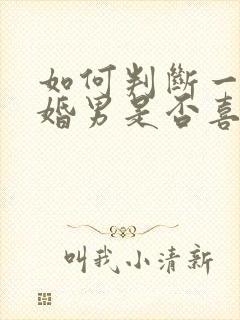 如何判断一
婚男是否喜
叫我小清新